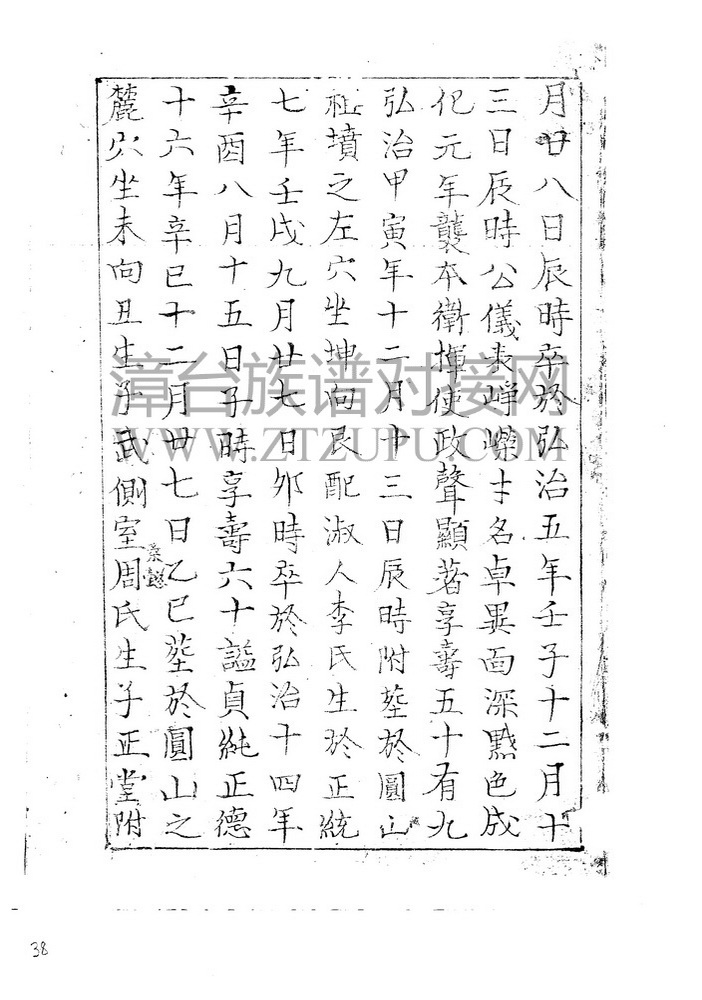 月廿八日辰時卒於弘治五年壬子十二月十
三日辰時公儀表崢嶸才名卓異面深黙色成
化元年襲本衛揮使政聲顯著享壽五十有九
弘治甲寅年十二月十三日辰時附塟於圓山
祖墳之左穴坐坤向艮配淑人李氏生於正統
七年壬戌九月廿七日夘時卒於弘治十四年
辛酉八月十五日子時享壽六十謚貞純正德
十六年辛巳十二月廿七日乙巳塟於圓山之
麓穴坐未向丑生子武側室周氏生子正堂附
漳台族谱对接网
WWW.ZTZUPU.COM
38